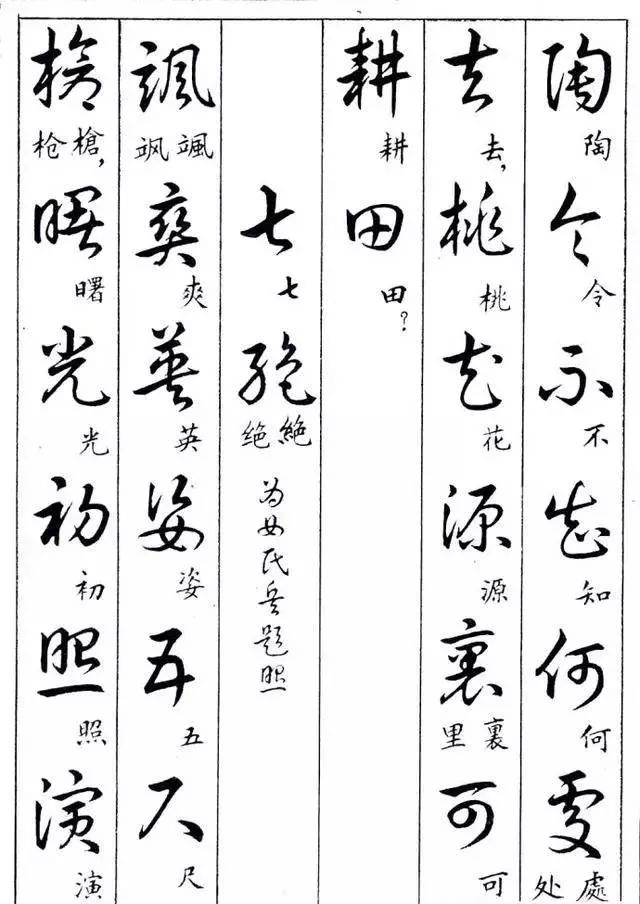 陶令不知何處
陶令不知何处處
去桃花源裏可
去，桃花源里裏可
耕田
耕田？
七絕
七绝絕
为女民兵题照
颯爽英姿五尺
飒颯爽英姿五尺
槍曙光初照演
枪槍，曙光初照演